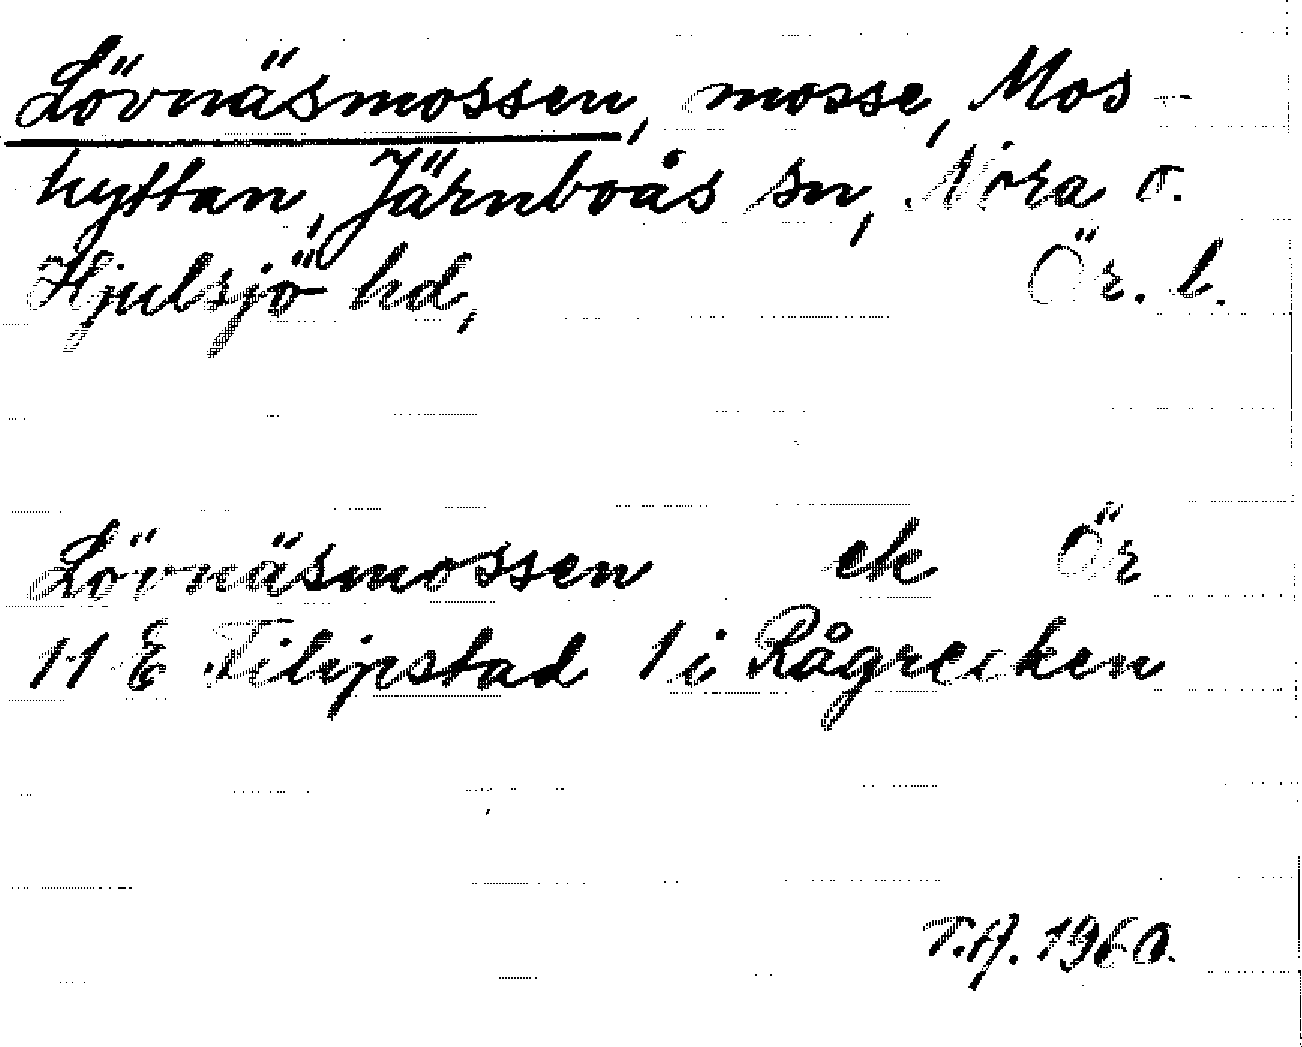 Lövnäsmossen, mosse, Mos-
hyttan, Järnboås sn, Nora o.
Hjulsjö hd, Ör. l.
Lövnäsmossen ek Ör
11 E Filipstad 1 i Rågrecken
T.A. 1960.